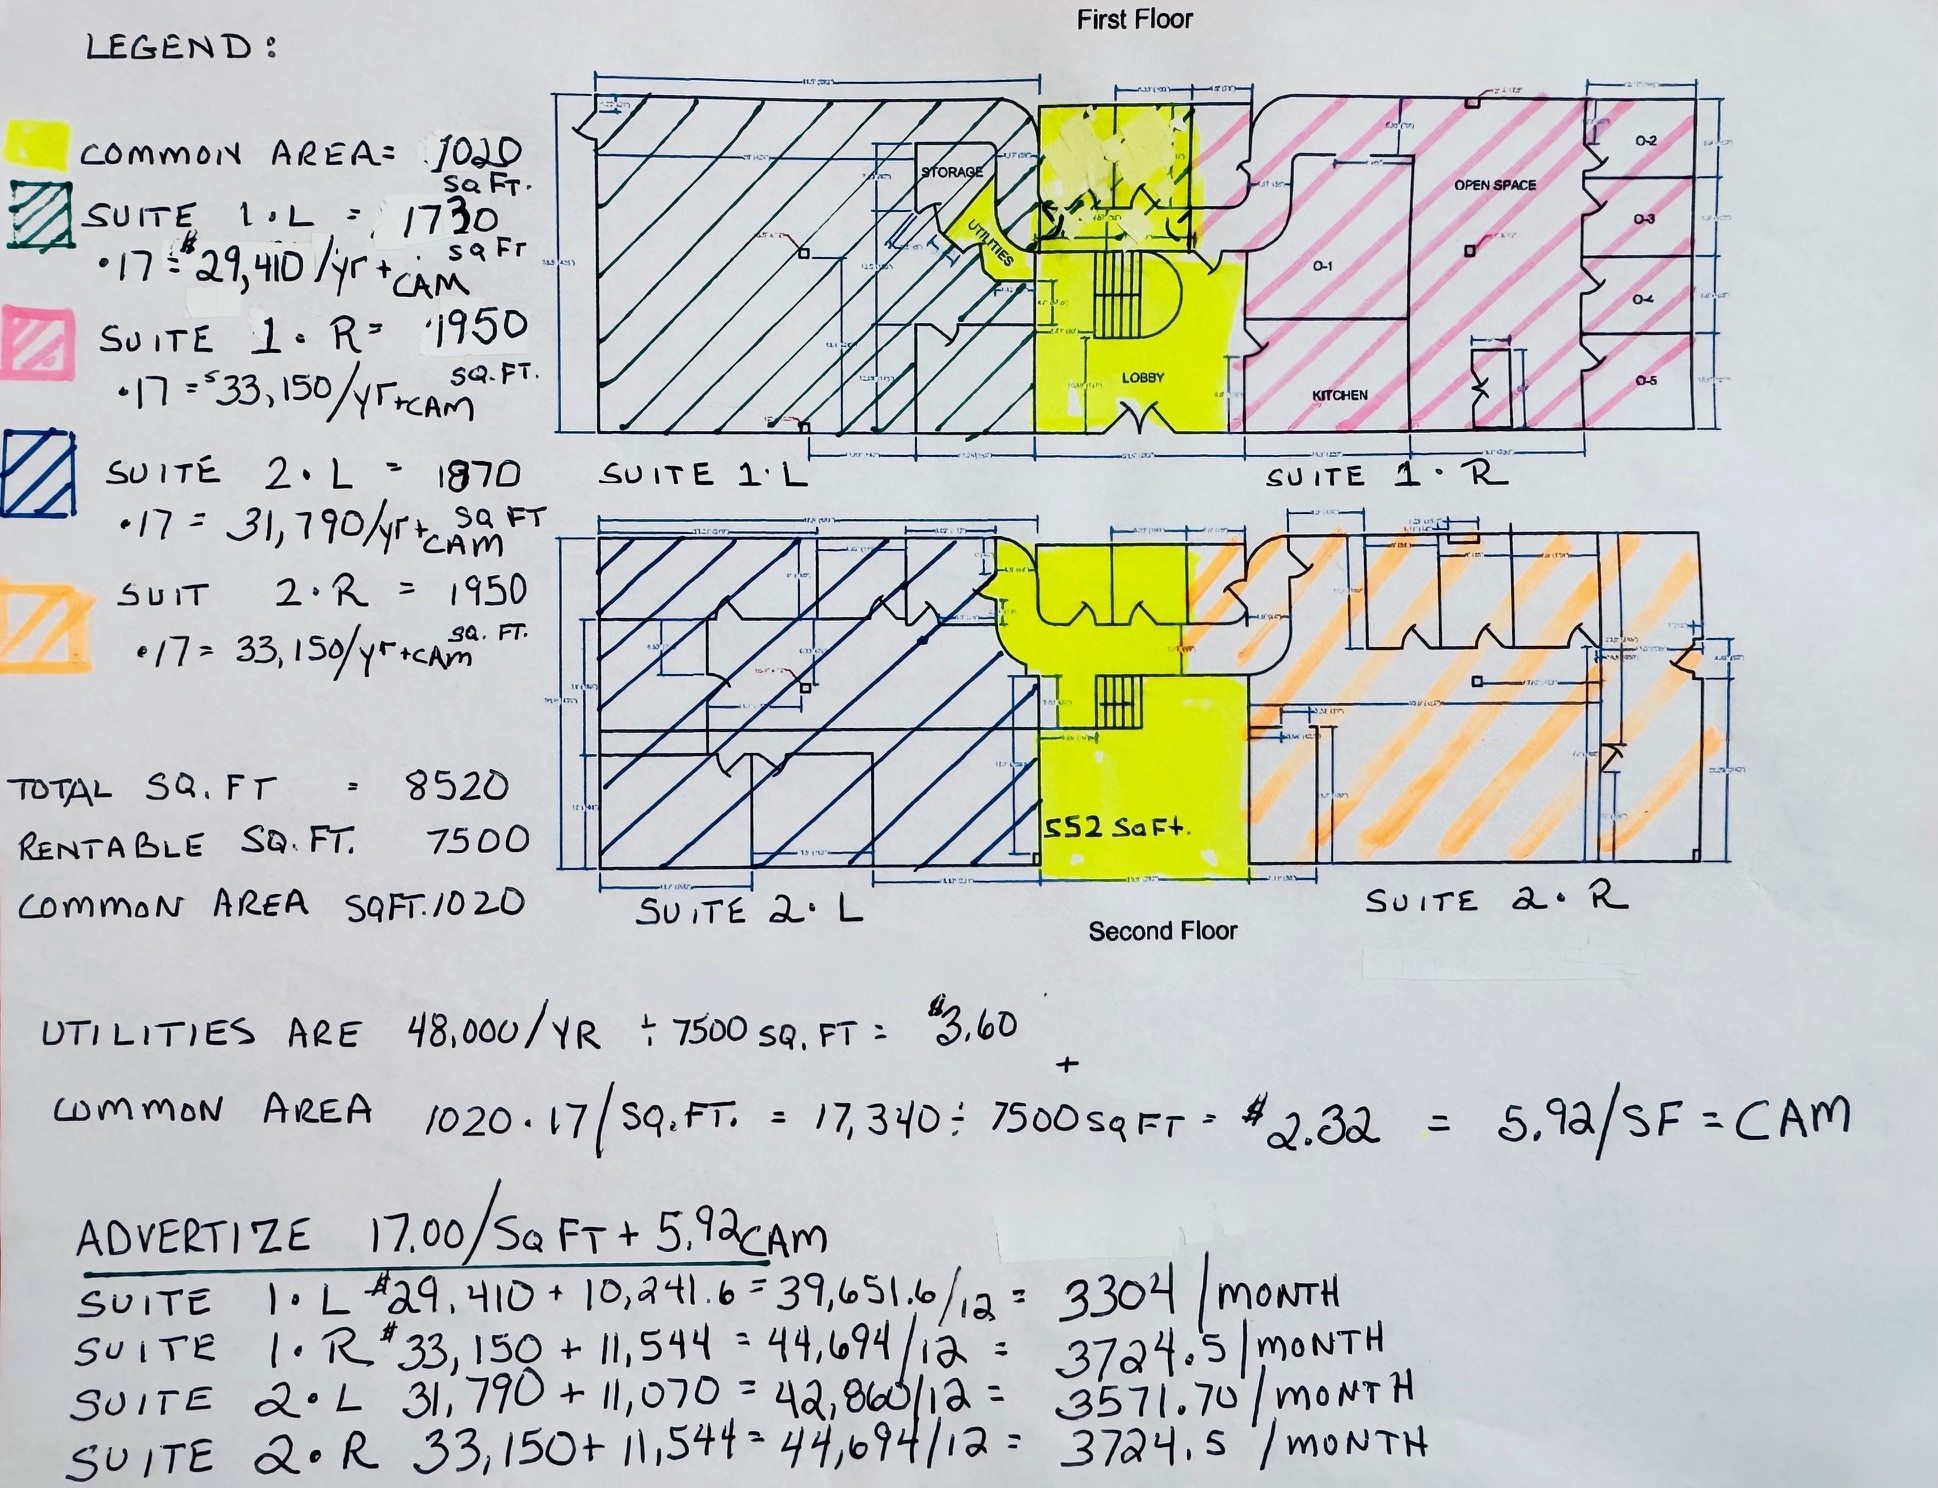 First Floor
LEGEND:
COMMON AREA= 1020 SQ FT.
SUITE 1·L = 1730 SQ FT
·17 = $29,410/yr + CAM
SUITE 1·R= 1950 SQ.FT.
·17 = $33,150/yr+CAM
SUITE 2·L = 1870 SQ FT
·17 = 31,790/yr+CAM
SUIT 2·R = 1950 SQ. FT.
·17= 33,150/yr+CAM
STORAGE
UTILITIES
LOBBY
O-1
KITCHEN
OPEN SPACE
O-2
O-3
O-4
O-5
SUITE 1·L
SUITE 1·R
552 SQ Ft.
SUITE 2·L
SUITE 2·R
Second Floor
TOTAL SQ.FT = 8520
RENTABLE SQ.FT. 7500
COMMON AREA SQFT.1020
UTILITIES ARE 48,000/YR ÷ 7500 SQ.FT = $3.60
+
COMMON AREA 1020·17/SQ.FT. = 17,340 ÷ 7500 SQ FT = $2.32 = 5.92/SF = CAM
ADVERTIZE 17.00/SQ FT + 5.92 CAM
SUITE 1·L $29,410 + 10,241.6 = 39,651.6/12 = 3304/MONTH
SUITE 1·R $33,150 + 11,544 = 44,694/12 = 3724.5/MONTH
SUITE 2·L 31,790 + 11,070 = 42,860/12 = 3571.70/MONTH
SUITE 2·R 33,150+ 11,544= 44,694/12 = 3724.5 /MONTH